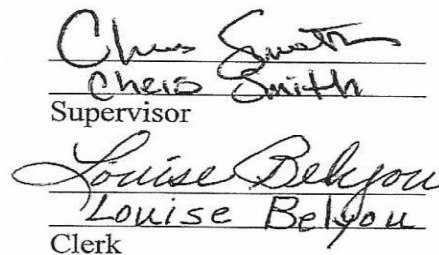 Chris Smith
Chris Smith
Supervisor
Louise Belyou
Louise Belyou
Clerk